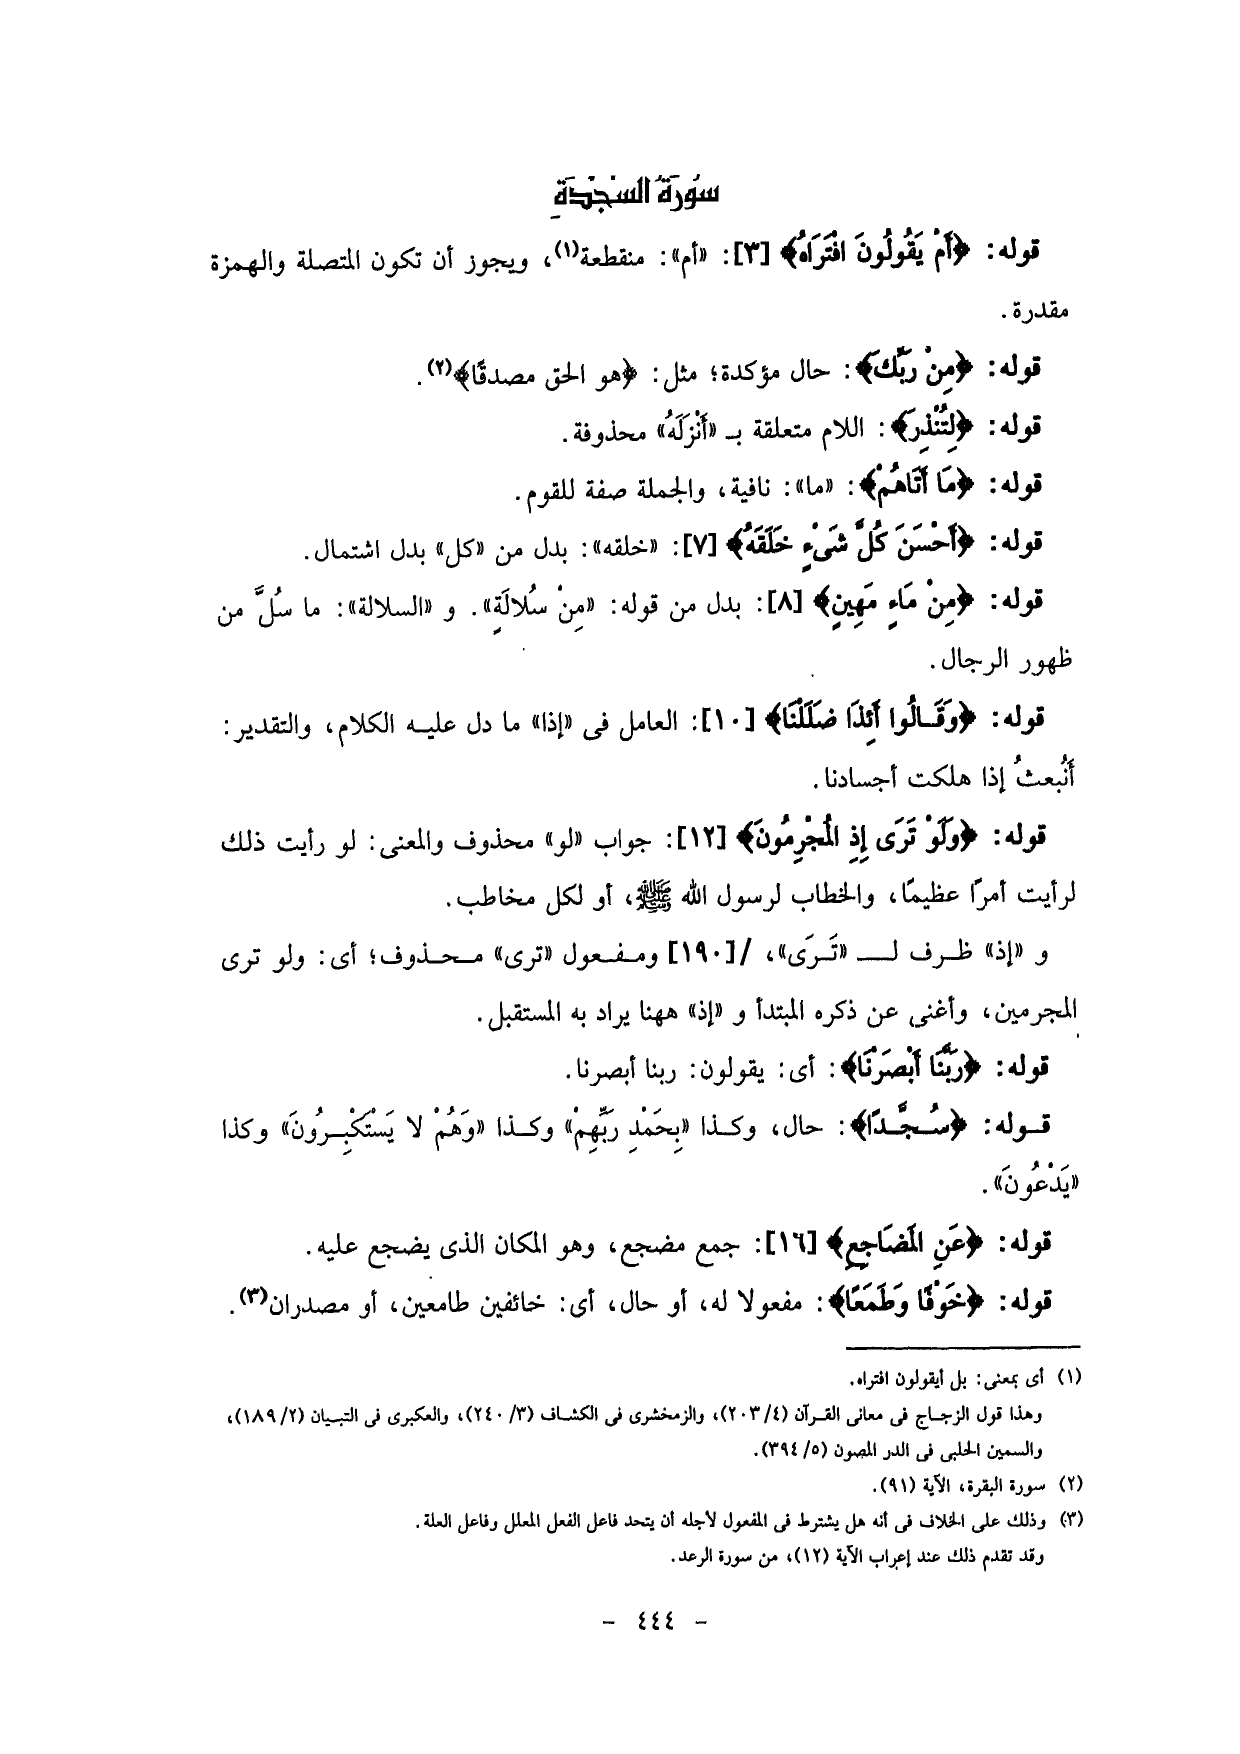 سُورَةُ السَّجْدَةِ
قوله: ﴿أَمْ يَقُولُونَ افْتَرَاهُ﴾ [٣]: «أم»: منقطعة(١)، ويجوز أن تكون المتصلة والهمزة
مقدرة.
قوله: ﴿مِنْ رَبِّكَ﴾: حال مؤكدة؛ مثل: ﴿هو الحق مصدقًا﴾(٢).
قوله: ﴿لِتُنْذِرَ﴾: اللام متعلقة بـ «أَنْزَلَهُ» محذوفة.
قوله: ﴿مَا أَتَاهُمْ﴾: «ما»: نافية، والجملة صفة للقوم.
قوله: ﴿أَحْسَنَ كُلَّ شَىْءٍ خَلَقَهُ﴾ [٧]: «خلقه»: بدل من «كل» بدل اشتمال.
قوله: ﴿مِنْ مَاءٍ مَهِينٍ﴾ [٨]: بدل من قوله: «مِنْ سُلالَةٍ». و «السلالة»: ما سُلَّ من
ظهور الرجال.
قوله: ﴿وَقَالُوا أَئِذَا ضَلَلْنَا﴾ [١٠]: العامل فى «إذا» ما دل عليه الكلام، والتقدير:
أَنُبعثُ إذا هلكت أجسادنا.
قوله: ﴿وَلَوْ تَرَى إِذِ الْمُجْرِمُونَ﴾ [١٢]: جواب «لو» محذوف والمعنى: لو رأيت ذلك
لرأيت أمرًا عظيمًا، والخطاب لرسول الله ﷺ، أو لكل مخاطب.
و «إذ» ظرف لـ «تَرَى»، /[١٩٠] ومفعول «ترى» محذوف؛ أى: ولو ترى
المجرمين، وأغنى عن ذكره المبتدأ و «إذ» ههنا يراد به المستقبل.
قوله: ﴿رَبَّنَا أَبْصَرْنَا﴾: أى: يقولون: ربنا أبصرنا.
قوله: ﴿سُجَّدًا﴾: حال، وكذا «بِحَمْدِ رَبِّهِمْ» وكذا «وَهُمْ لا يَسْتَكْبِرُونَ» وكذا
«يَدْعُونَ».
قوله: ﴿عَنِ الْمَضَاجِعِ﴾ [١٦]: جمع مضجع، وهو المكان الذى يضجع عليه.
قوله: ﴿خَوْفًا وَطَمَعًا﴾: مفعولا له، أو حال، أى: خائفين طامعين، أو مصدران(٣).
(١) أى بمعنى: بل أيقولون افتراه.
وهذا قول الزجاج فى معانى القرآن (٢٠٣/٤)، والزمخشرى فى الكشاف (٢٤٠/٣)، والعكبرى فى التبيان (١٨٩/٢)،
والسمين الحلبى فى الدر المصون (٣٩٤/٥).
(٢) سورة البقرة، الآية (٩١).
(٣) وذلك على الخلاف فى أنه هل يشترط فى المفعول لأجله أن يتحد فاعل الفعل المعلل وفاعل العلة.
وقد تقدم ذلك عند إعراب الآية (١٢)، من سورة الرعد.
- ٤٤٤ -